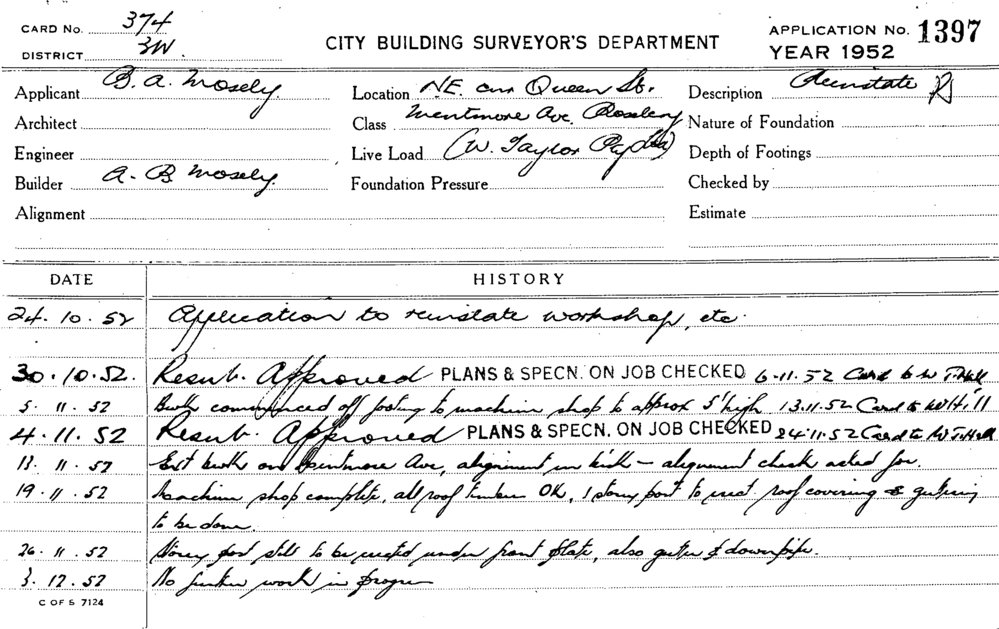 CARD No. 374
DISTRICT 3W
CITY BUILDING SURVEYOR'S DEPARTMENT
APPLICATION No. 1397
YEAR 1952
Applicant B. A. Mosely.
Location N.E. cnr Queen St.
Description Reinstate
Architect
Class Mentmore Ave. Rosebery
Nature of Foundation
Engineer
Live Load (W. Taylor Pty Ltd)
Depth of Footings
Builder A. B Mosely.
Foundation Pressure
Checked by
Alignment
Estimate
DATE HISTORY
24.10.52 Application to reinstate workshop, etc.
30.10.52. Resub. Approved PLANS & SPECN. ON JOB CHECKED 6.11.52 Card to W T. Hall
5.11.52 Bwk commenced off footing to machine shop to approx 5' high 13.11.52 Card to
4.11.52 Resub. Approved PLANS & SPECN. ON JOB CHECKED 24.11.52 Card to W T. Hall
13.11.52 Ext bwk on Mentmore Ave, alignment in - alignment check asked for.
19.11.52 Machine shop complete, all roof timber OK, 1 storey post to erect roof covering & guttering
to be done.
26.11.52 Storey post still to be erected under front plate, also gutter & downpipe.
3.12.52 No further work in progress
C OF S 7124